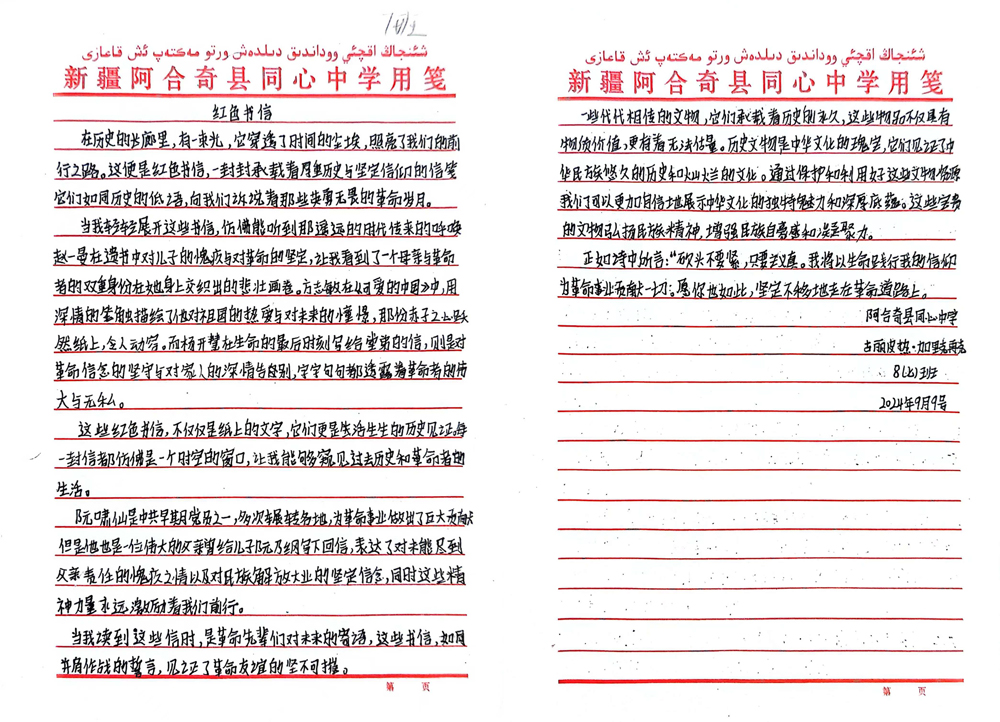 شىنجاڭ اقچئي ووداندىق دىلدەش ورتو مەكتەپ ئش قاعازى
新疆阿合奇县同心中学用笺
红色书信
在历史的长廊里，有一束光，它穿透了时间的尘埃，照亮了我们的前
行之路。这便是红色书信，一封封承载着厚重历史与坚定信仰的信笺
它们如同历史的低语，向我们诉说着那些英勇无畏的革命岁月。
当我轻轻展开这些书信，仿佛能听到那遥远的时代传来的呼唤
赵一曼在遗书中对儿子的愧疚与对革命的坚定，让我看到了一个母亲与革命
者的双重身份在她身上交织出的悲壮画卷。方志敏在《可爱的中国》中，用
深情的笔触描绘了他对祖国的热爱与对未来的憧憬，那份赤子之心跃
然纸上，令人动容。而杨开慧在生命的最后时刻写给堂弟的信，则是对
革命信念的坚守与对家人的深情告别，字字句句都透露着革命者的伟
大与无私。
这些红色书信，不仅仅是纸上的文字，它们更是生活生生的历史见证，每
一封信都仿佛是一个时空的窗口，让我能够窥见过去历史和革命者的
生活。
阮啸仙是中共早期党员之一，多次辗转各地，为革命事业做出了巨大贡献
但是他也是一位伟大的父亲曾给儿子阮乃纲写下回信，表达了对未能尽到
父亲责任的愧疚之情以及对民族解放大业的坚定信念，同时这些精
神力量永远激励着我们前行。
当我读到这些信时，是革命先辈们对未来的寄语，这些书信，如同
并肩作战的誓言，见证了革命友谊的坚不可摧。
第 页
شىنجاڭ اقچئي ووداندىق دىلدەش ورتو مەكتەپ ئش قاعازى
新疆阿合奇县同心中学用笺
一些代代相传的文物，它们承载着历史的永久，这些物品不仅具有
物质价值，更有着无法估量。历史文物是中华文化的瑰宝，它们见证了中
华民族悠久的历史和灿烂的文化。通过保护和利用好这些文物资源
我们可以更加自信地展示中华文化的独特魅力和深厚底蕴。这些宝贵
的文物弘扬民族精神，增强民族自尊感和凝聚力。
正如诗中所言：“砍头不要紧，只要主义真。我将以生命践行我的信仰
为革命事业贡献一切。愿你也如此，坚定不移地走在革命道路上。
阿合奇县同心中学
古丽皮热·加里克
8（2）班
2024年9月9号
第 页